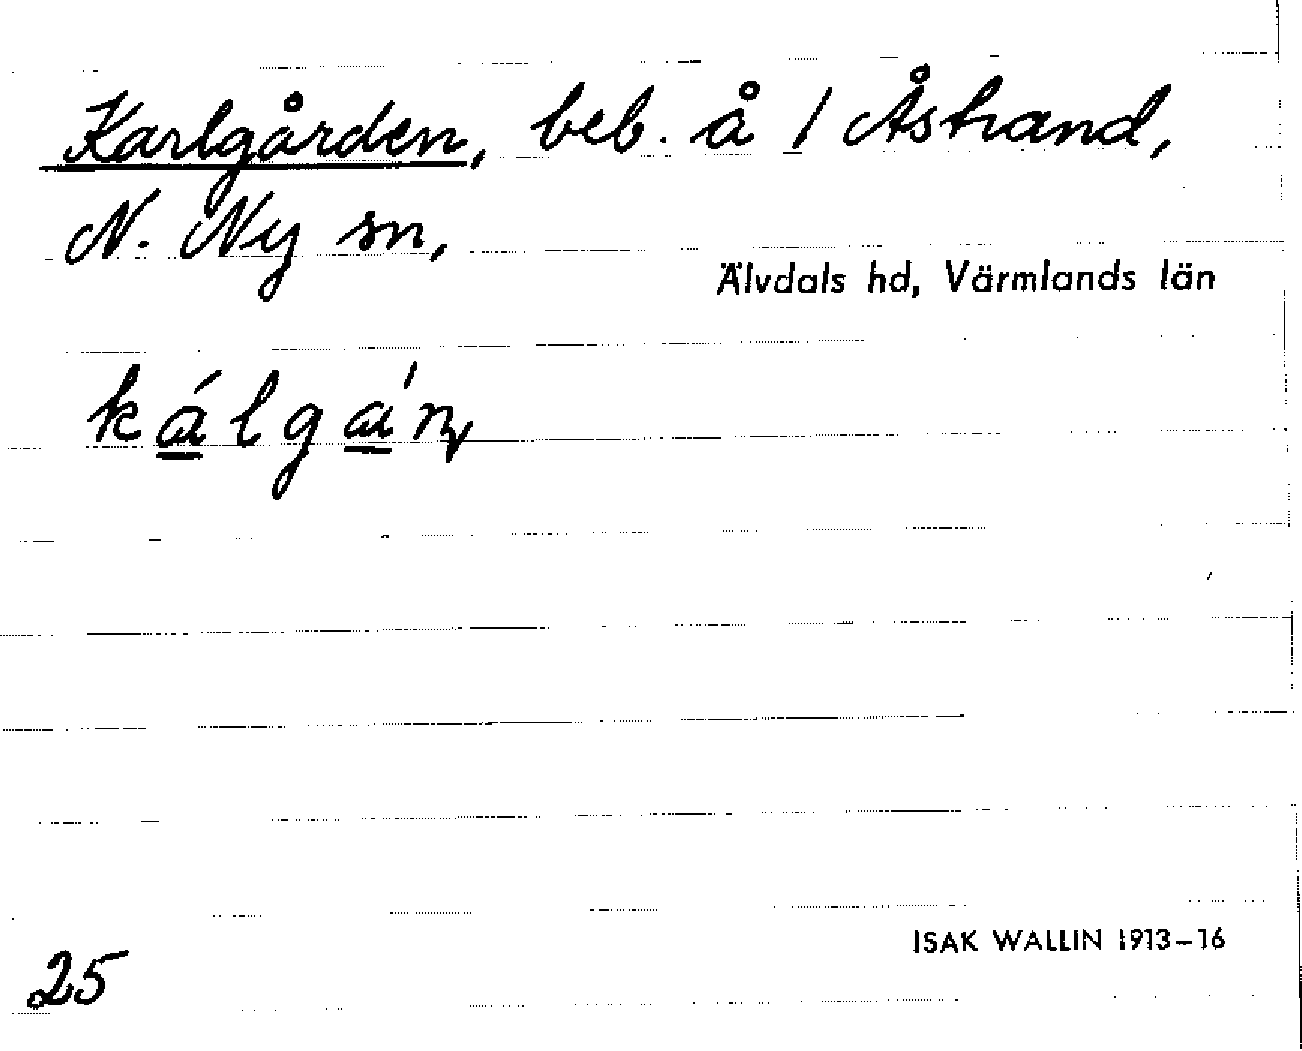 Karlgården, beb. å 1 Åstrand,
N. Ny sn,
Älvdals hd, Värmlands län
ISAK WALLIN 1913–16
25